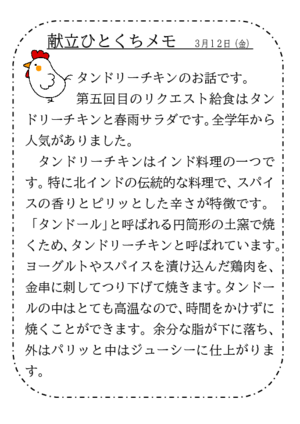 献立ひとくちメモ　3月12日（金）
タンドリーチキンのお話です。
第五回目のリクエスト給食はタン
ドリーチキンと春雨サラダです。全学年から
人気がありました。
　タンドリーチキンはインド料理の一つで
す。特に北インドの伝統的な料理で、スパイ
スの香りとピリッとした辛さが特徴です。
「タンドール」と呼ばれる円筒形の土窯で焼
くため、タンドリーチキンと呼ばれています。
ヨーグルトやスパイスを漬け込んだ鶏肉を、
金串に刺してつり下げて焼きます。タンドー
ルの中はとても高温なので、時間をかけずに
焼くことができます。余分な脂が下に落ち、
外はパリッと中はジューシーに仕上がりま
す。